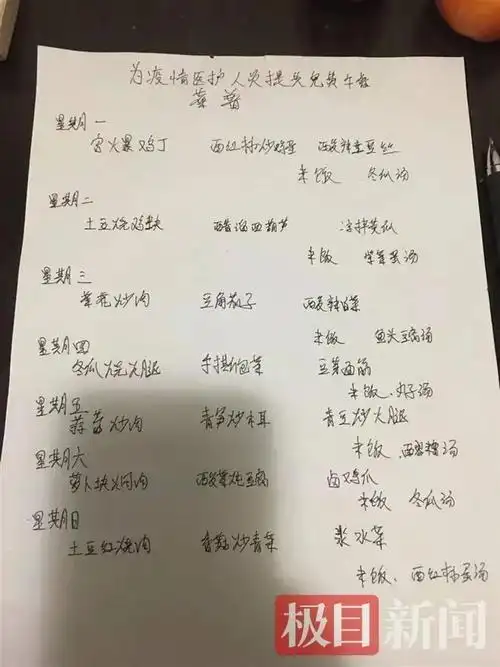 为疫情医护人员提供免费午餐
菜普
星期一
宫火暴鸡丁 西红柿炒鸡蛋 酸辣土豆丝
米饭 冬瓜汤
星期二
土豆烧鸡块 醋溜西葫芦 凉拌黄瓜
米饭 紫菜蛋汤
星期三
菜花炒肉 豆角茄子 酸辣白菜
米饭 鱼头豆腐汤
星期四
冬瓜烧火腿 手撕包菜 豆芽面筋
米饭、丸子汤
星期五
蒜苔炒肉 青笋炒木耳 青豆炒火腿
米饭、西湖 汤
星期六
萝卜块焖肉 炖豆腐 卤鸡爪
米饭 冬瓜汤
星期日
土豆红烧肉 香菇炒青菜 浆水菜
米饭、西红柿蛋汤
极目新闻